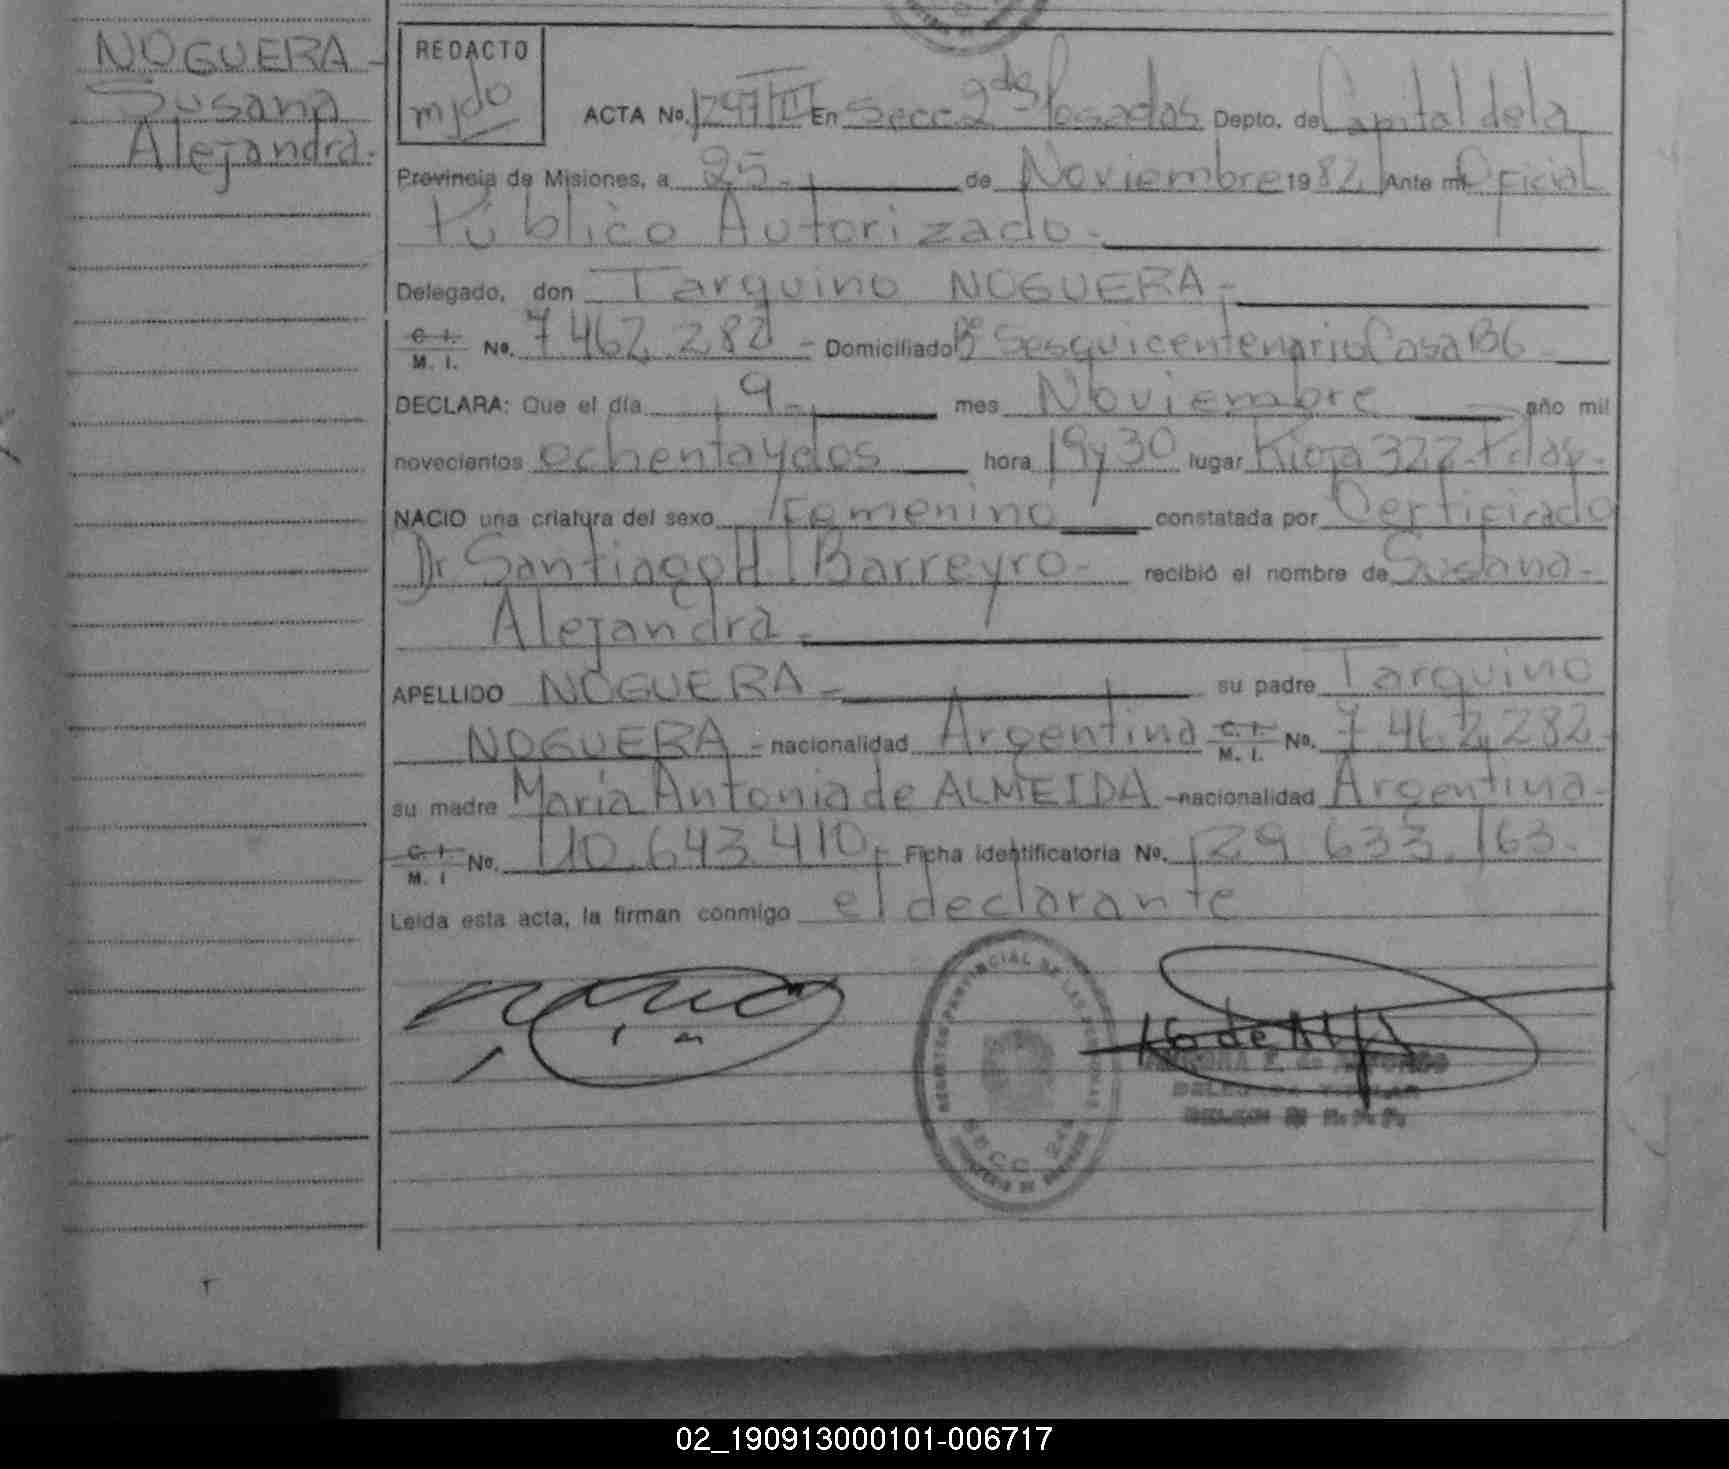 NOGUERA-
Susana
Alejandra.
REDACTO
mjdo
ACTA No. 1297 III En Secc 2da Posadas Depto. de Capital de la
Provincia de Misiones, a 25.- de Noviembre 1982 Ante mi Oficial
Público Autorizado.-
Delegado, don Tarquino NOGUERA-
C. I. M. I. No. 7.462.282 - Domiciliado Bº Sesquicentenario Casa B6
DECLARA: Que el día 9.- mes Noviembre año mil
novecientos ochentaydos hora 19y30 lugar Rioja 322-Pdas.-
NACIO una criatura del sexo Femenino constatada por Certificado
Dr Santiago H Barreyro- recibió el nombre de Susana-
Alejandra.-
APELLIDO NOGUERA- su padre Tarquino
NOGUERA - nacionalidad Argentina C. I. M. I. No. 7.462.282-
su madre María Antonia de ALMEIDA - nacionalidad Argentina-
C. I. M. I No. 10.643.410,- Ficha identificatoria No. 29.633.163.-
Leída esta acta, la firman conmigo el declarante
REGISTRO PROVINCIAL DE LAS PERSONAS
SECC 2da
02_190913000101-006717